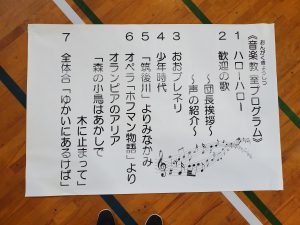 おんがくきょうしつ
《音楽教室プログラム》
1 ハローハロー
2 歓迎の歌
～団長挨拶～
～声の紹介～
3 おおブレネリ
4 少年時代
5 「筑後川」よりみなかみ
6 オペラ「ホフマン物語」より
オランピアのアリア
「森の小鳥はあこがれて
木に止まって」
7 全体合「ゆかいにあるけば」